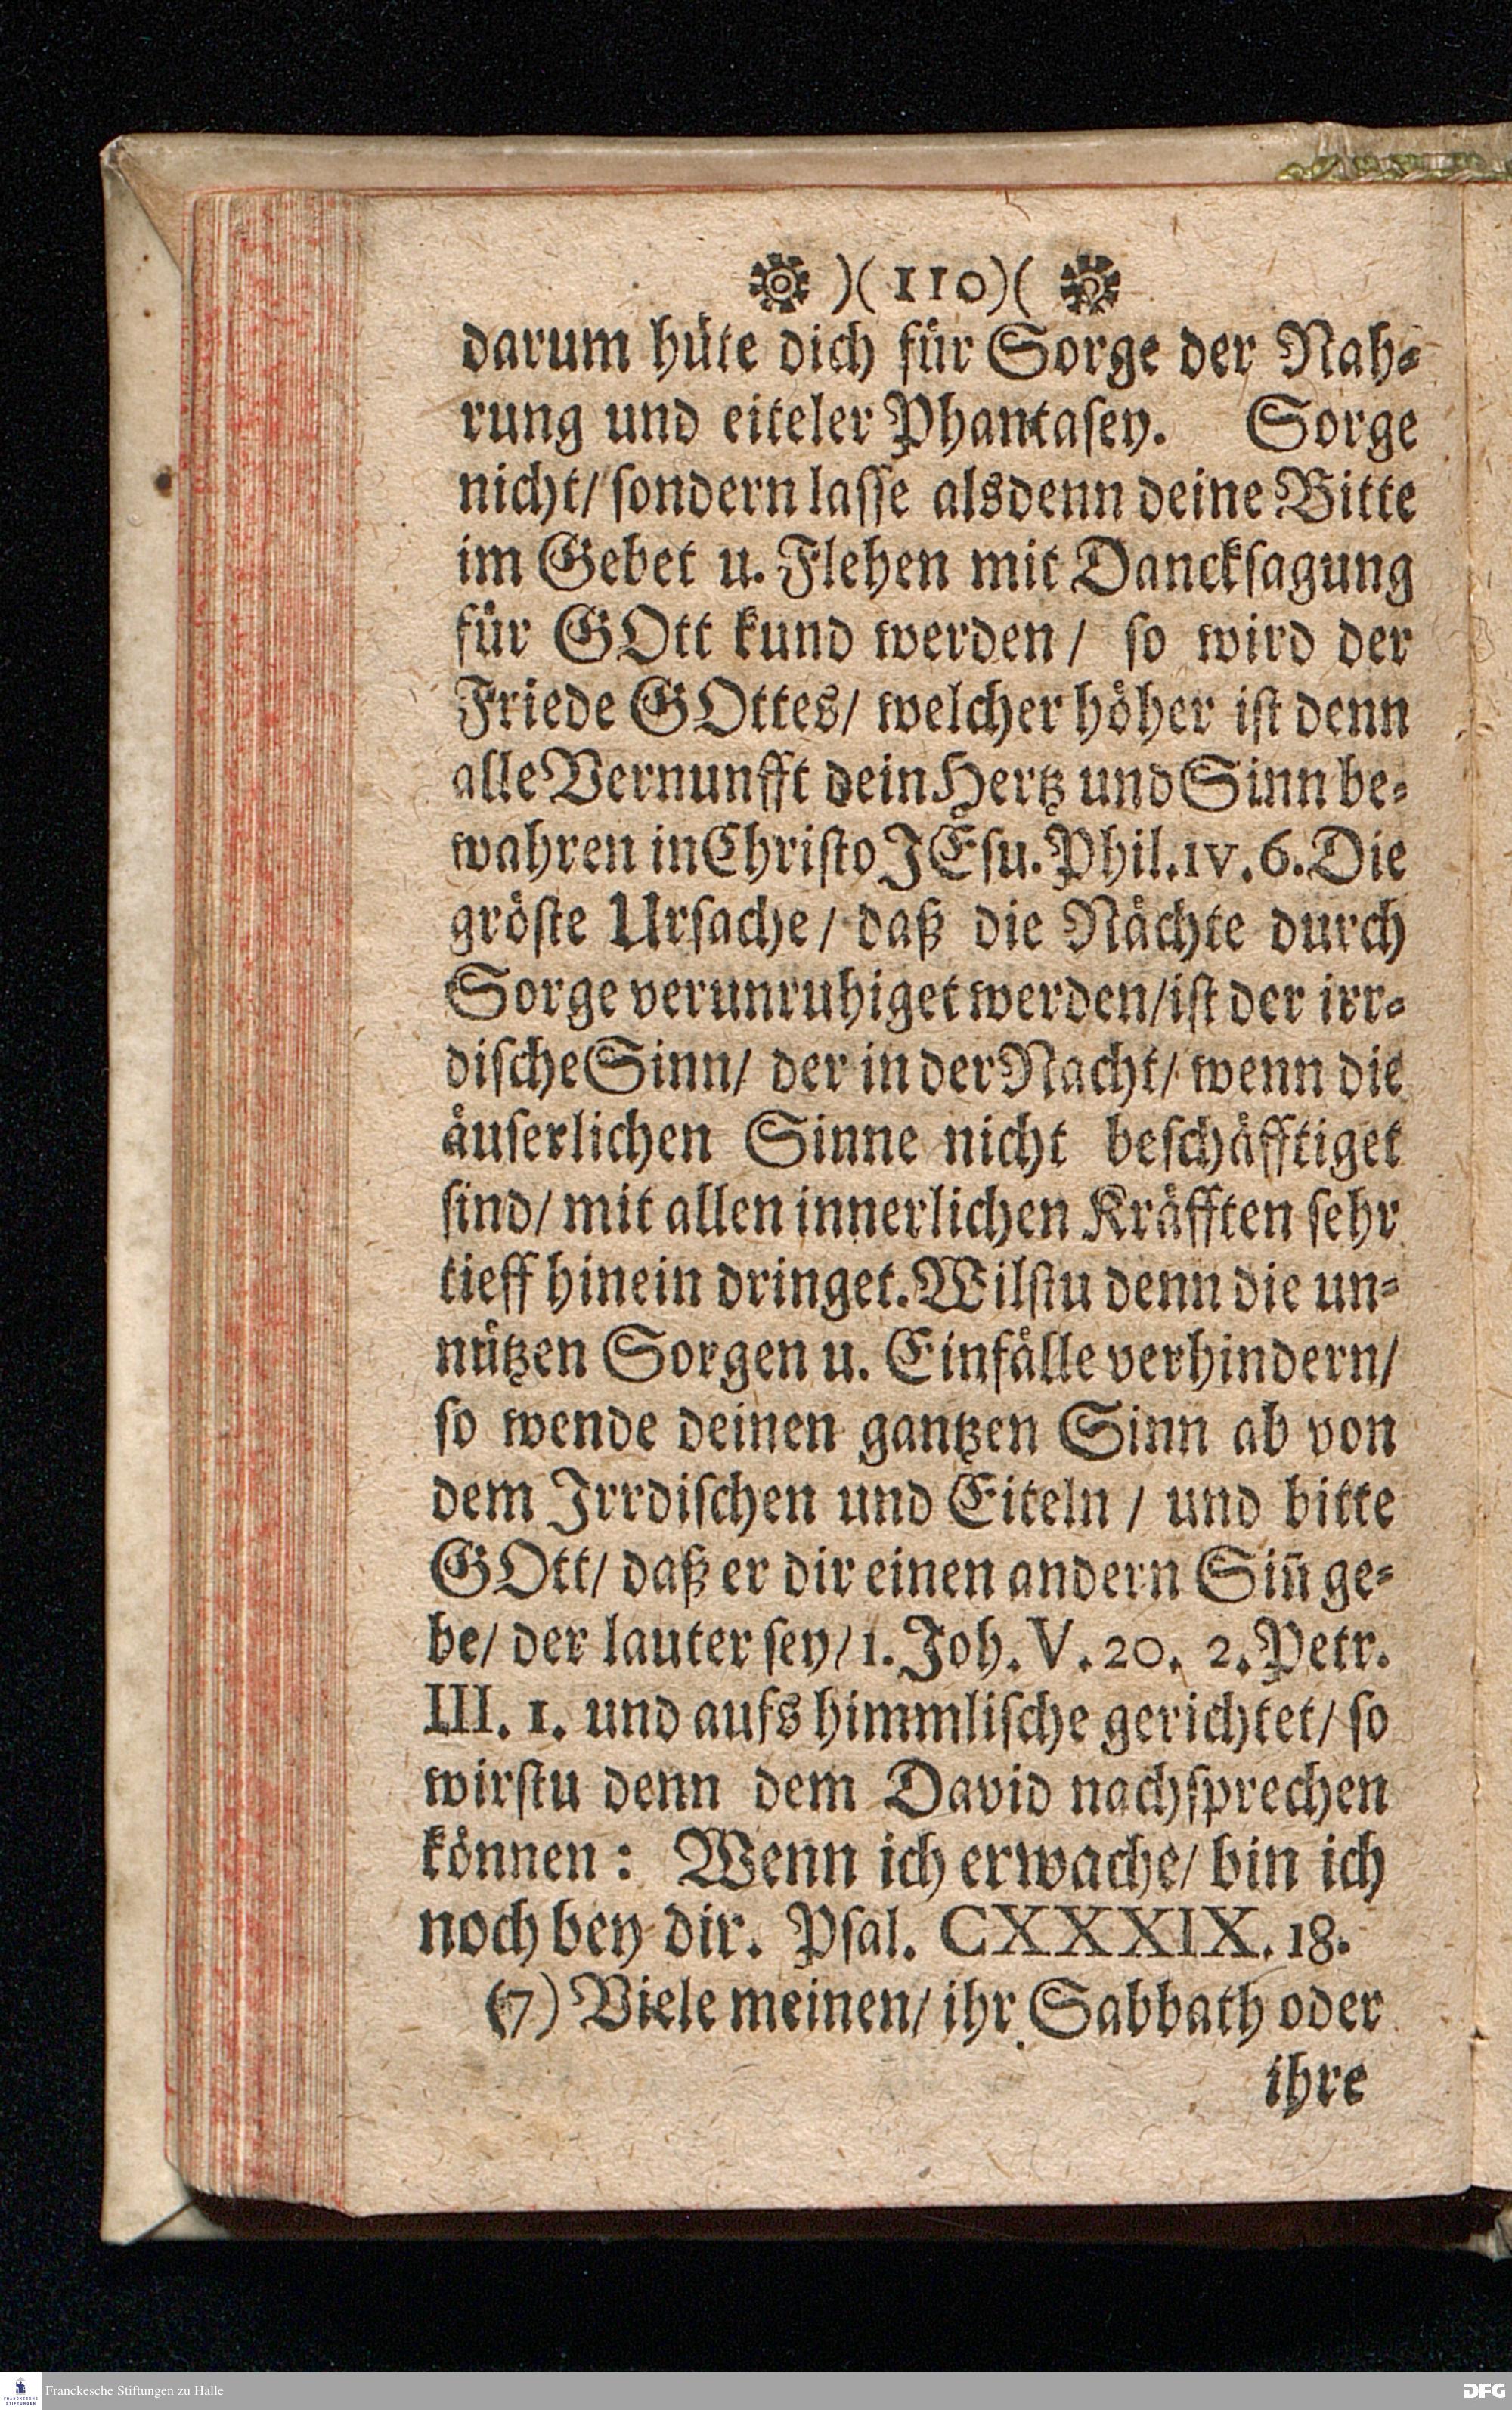 )( 110 )(
darum hüte dich für Sorge der Nah-
rung und eiteler Phantasey. Sorge
nicht/ sondern lasse alsdenn deine Bitte
im Gebet u. Flehen mit Dancksagung
für GOtt kund werden/ so wird der
Friede GOttes/ welcher höher ist denn
alle Vernunfft dein Hertz und Sinn be-
wahren in Christo JEsu. Phil. IV. 6. Die
gröste Ursache/ daß die Nächte durch
Sorge verunruhiget werden/ ist der irr-
dische Sinn/ der in der Nacht/ wenn die
äuserlichen Sinne nicht beschäfftiget
sind/ mit allen innerlichen Kräfften sehr
tieff hinein dringet. Wilstu denn die un-
nützen Sorgen u. Einfälle verhindern/
so wende deinen gantzen Sinn ab von
dem Irrdischen und Eiteln / und bitte
GOtt/ daß er dir einen andern Siñ ge-
be/ der lauter sey/ 1. Joh. V. 20. 2. Petr.
III. 1. und aufs himmlische gerichtet/ so
wirstu denn dem David nachsprechen
können: Wenn ich erwache/ bin ich
noch bey dir. Psal. CXXXIX. 18.
(7) Viele meinen/ ihr Sabbath oder
ihre
Franckesche Stiftungen zu Halle
DFG